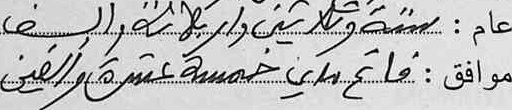 عام : ستة وثلاثين وأربعمائة وألف
موافق : فاتح ماي خمسة عشرة وألفين